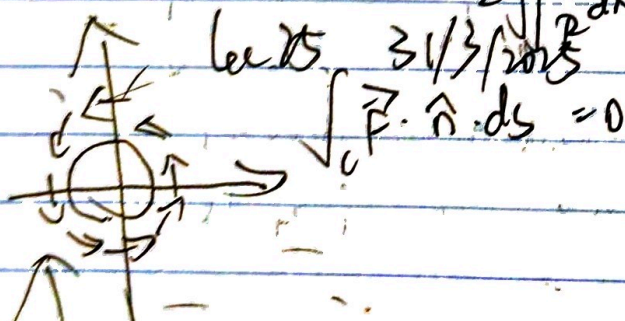 lec 25 31/3/2025
∫_C F⃗ · n̂ · ds = 0